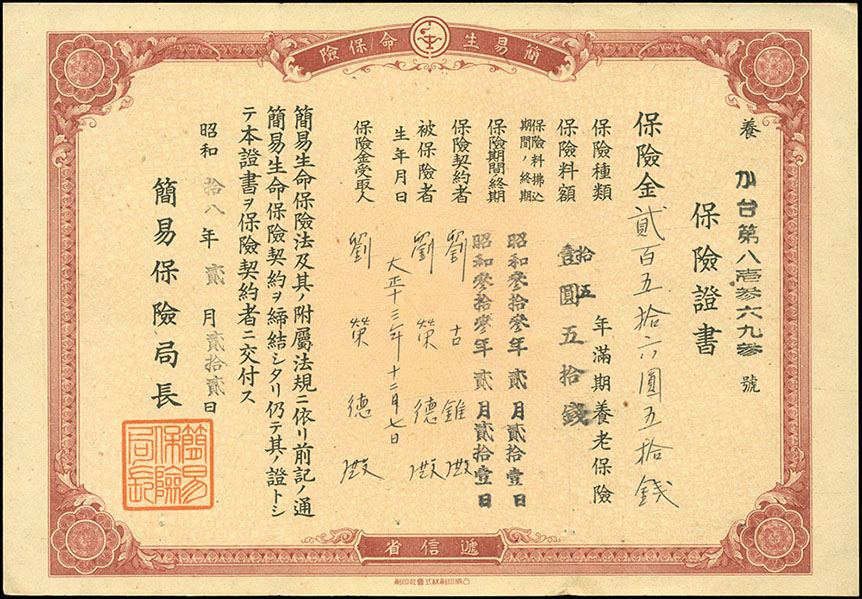 簡易生命保險
養 加台第八壹參六九參 號
保險證書
保險金 貳百五拾六圓五拾錢
保險種類 拾五年滿期養老保險
保險料額 壹圓五拾錢
保險料拂込期間ノ終期 昭和參拾參年貳月貳拾壹日
保險期間終期 昭和參拾參年貳月貳拾壹日
保險契約者 劉古錐殿
被保險者 劉榮德殿
生年月日 大正十三年十二月七日
保險金受取人 劉榮德殿
簡易生命保險法及其ノ附屬法規ニ依リ前記ノ通
簡易生命保險契約ヲ締結シタリ仍テ其ノ證トシ
テ本證書ヲ保險契約者ニ交付ス
昭和拾八年貳月貳拾貳日
簡易保險局長
簡易保險局長
遞信省